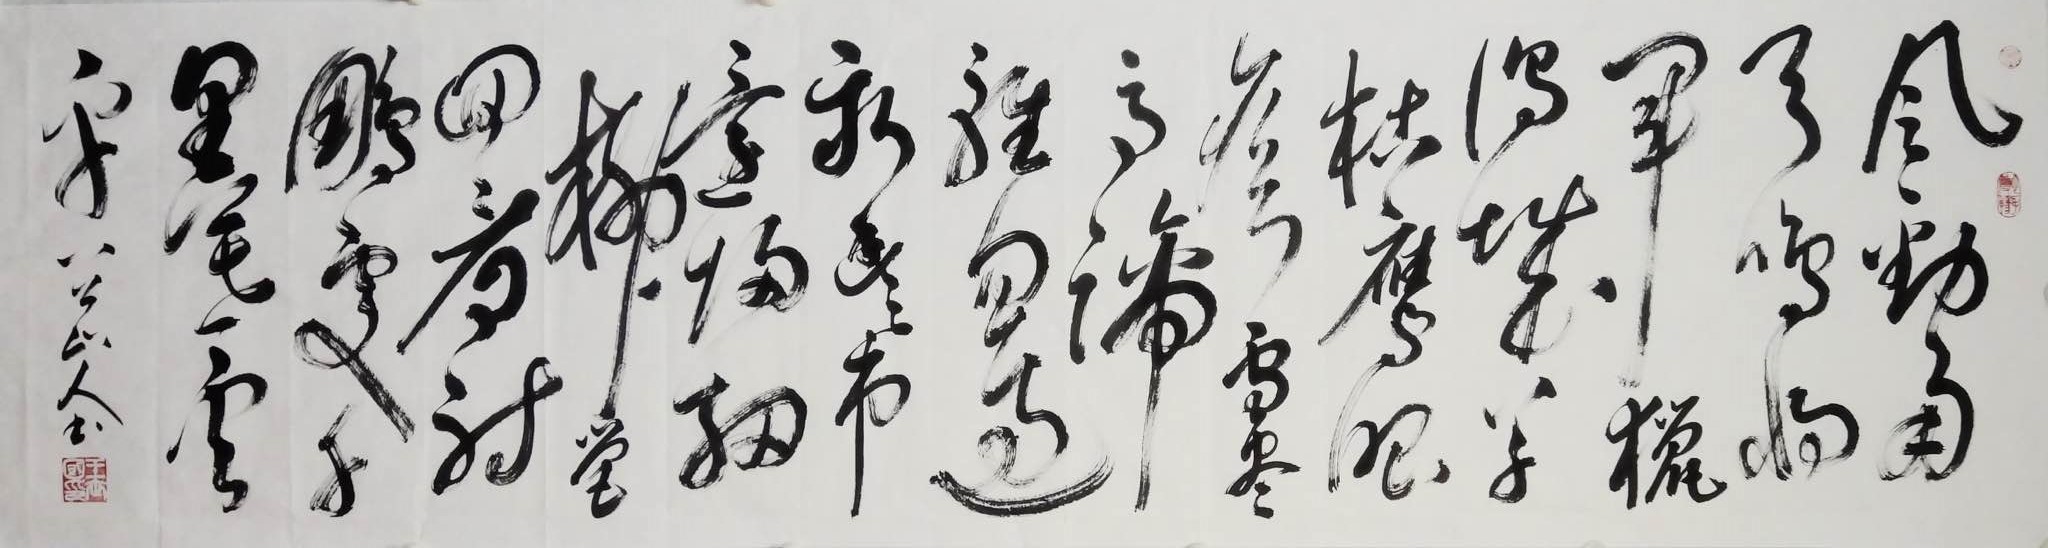 風勁角
弓鳴將
軍獵
渭城草
枯鷹眼
疾雪盡
馬蹄
輕忽過
新豐市
還歸細
柳營
回看射
鵰處千
里暮雲
平 八公山人书